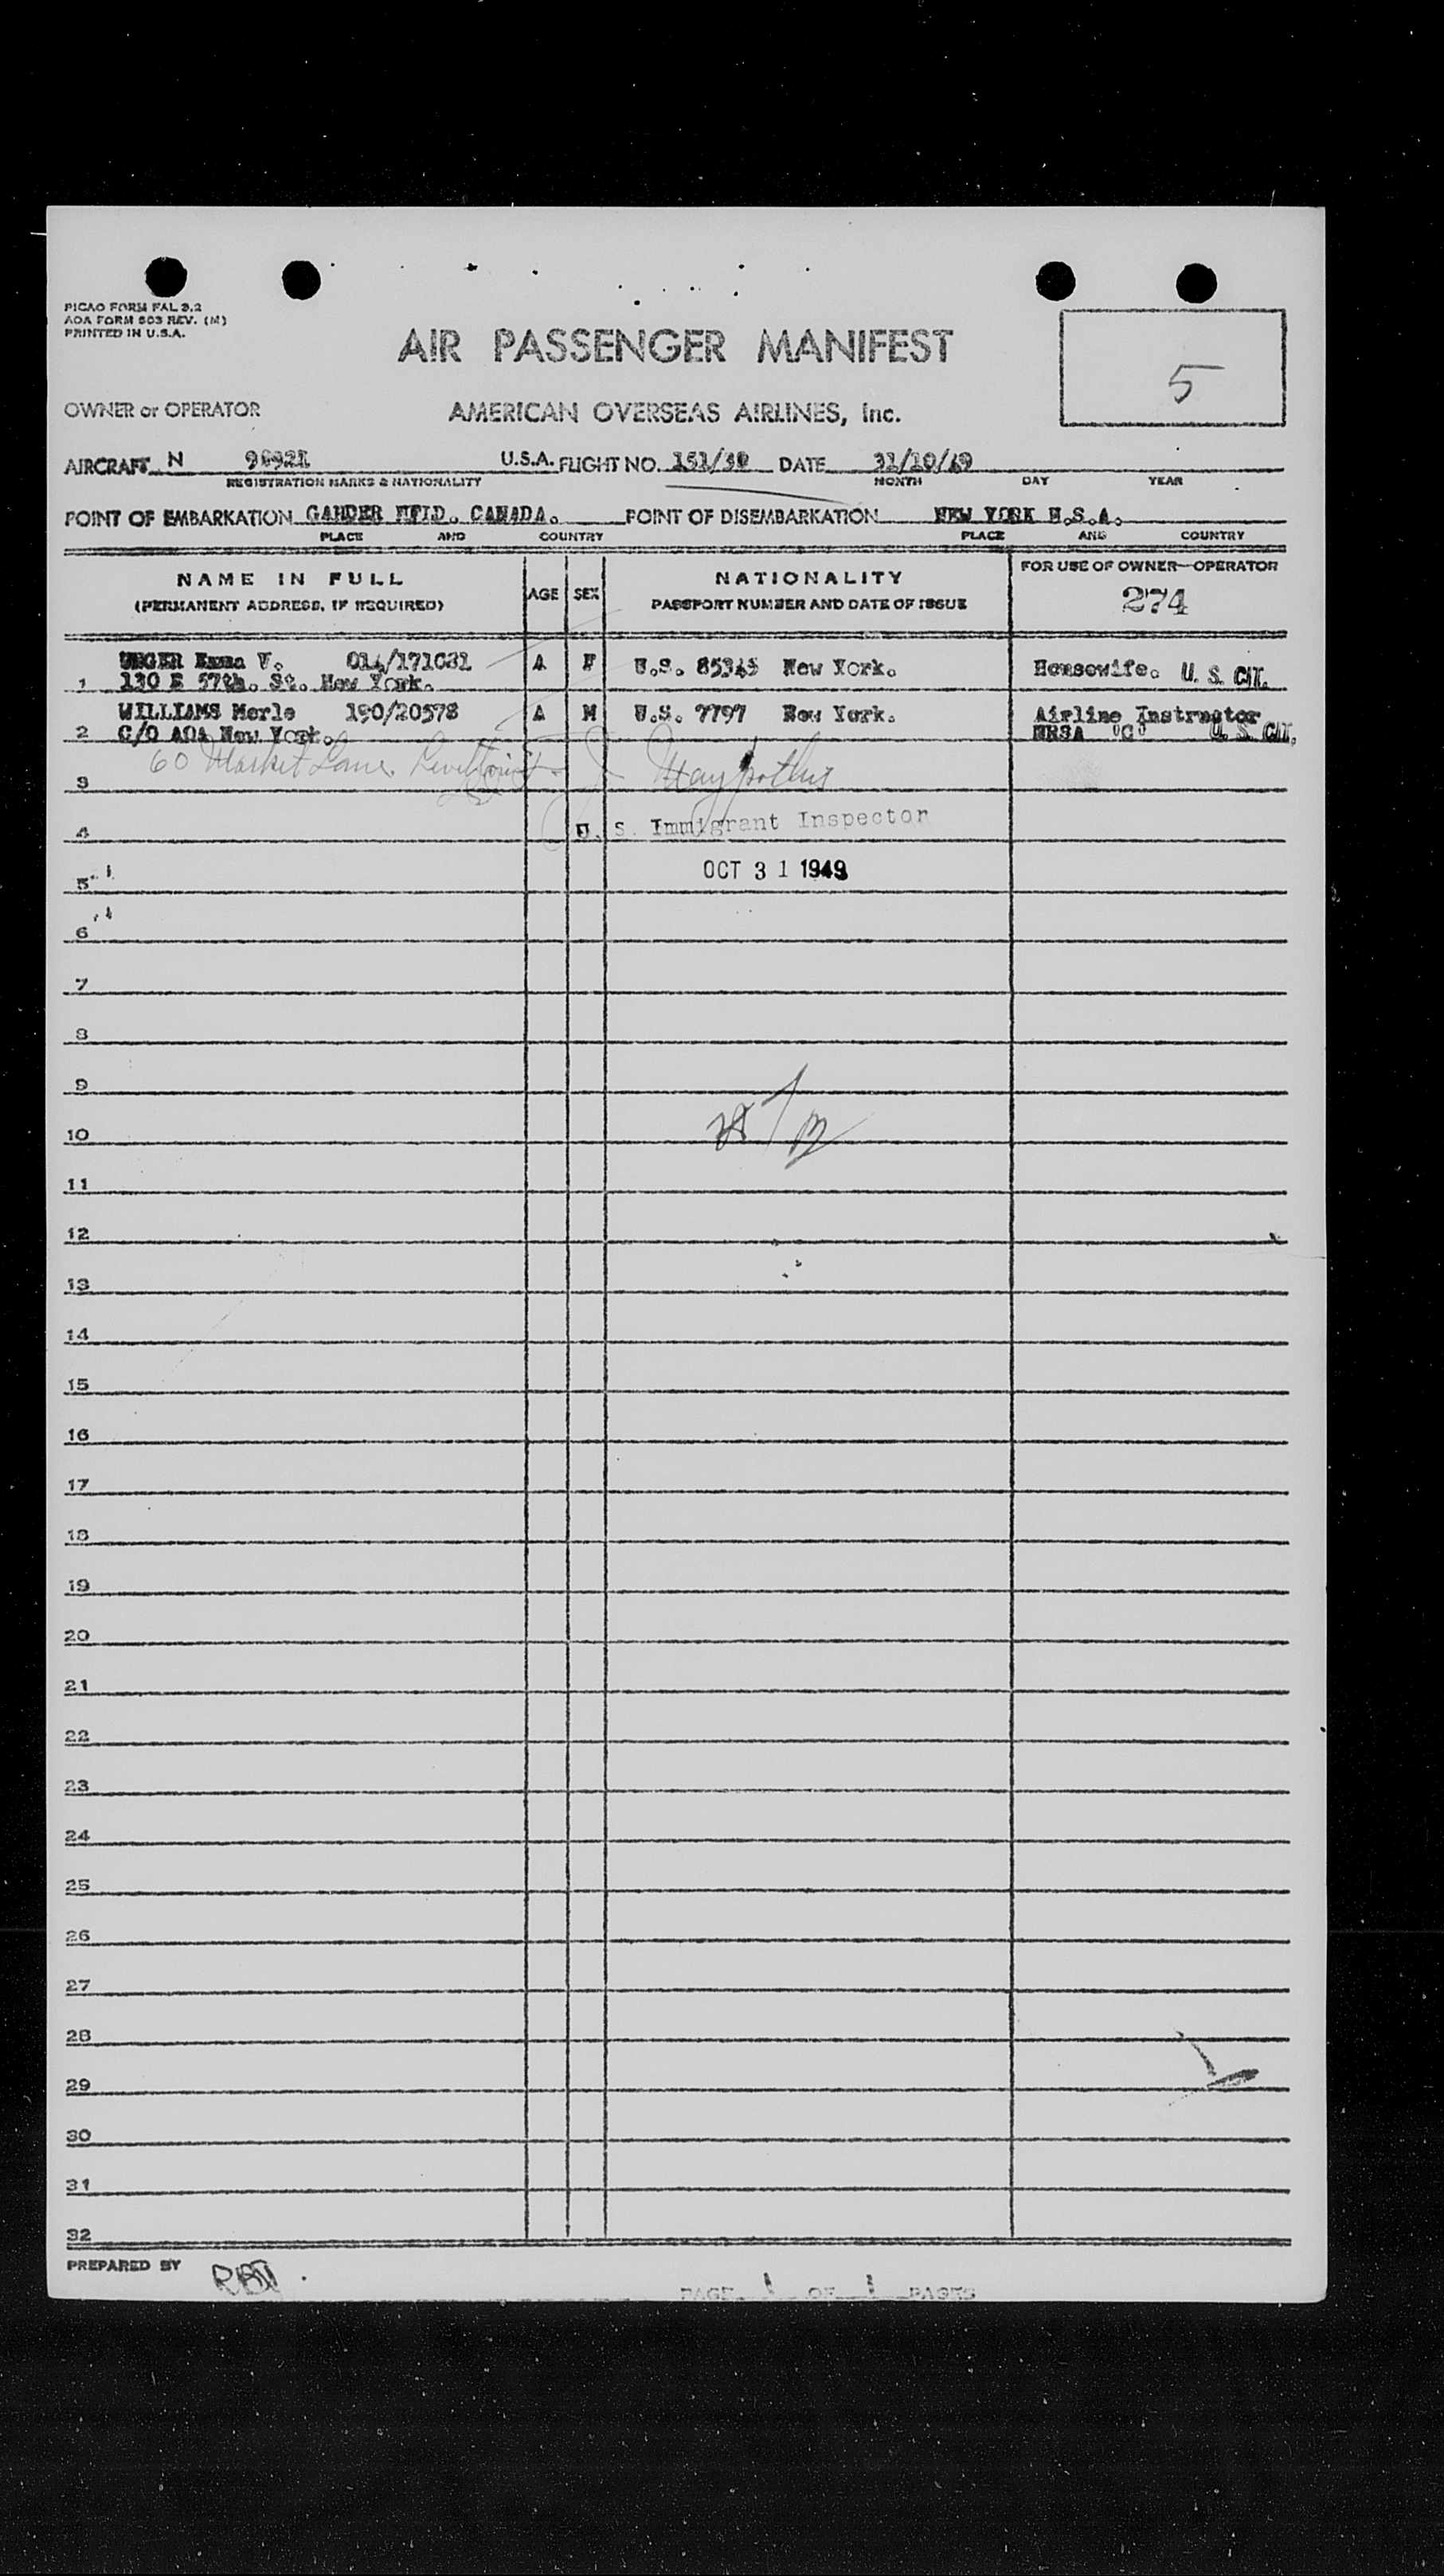 PICAO FORM FAL 3.2
AOA FORM 603 REV. (M)
PRINTED IN U.S.A.
AIR PASSENGER MANIFEST
5
OWNER or OPERATOR AMERICAN OVERSEAS AIRLINES, Inc.
AIRCRAFT N U.S.A. FLIGHT NO. 151/30 DATE 31/10/49
REGISTRATION MARKS & NATIONALITY MONTH DAY YEAR
POINT OF EMBARKATION GANDER NFLD. CANADA. POINT OF DISEMBARKATION NEW YORK U.S.A.
PLACE AND COUNTRY PLACE AND COUNTRY
NAME IN FULL AGE SEX NATIONALITY FOR USE OF OWNER—OPERATOR
(PERMANENT ADDRESS, IF REQUIRED) PASSPORT NUMBER AND DATE OF ISSUE 274
UNGER Emma V. 014/171031 A F U.S. 85345 New York. Housewife. U. S. CIT.
1 130 E 57th. St. New York.
WILLIAMS Merle 190/20578 A M U.S. 7797 New York. Airline Instructor
2 C/O AOA New York. "C" U. S. CIT.
60 Market Lane. Levittown
3
4 U. S. Immigrant Inspector
OCT 31 1949
5
6
7
8
9
10
11
12
13
14
15
16
17
18
19
20
21
22
23
24
25
26
27
28
29
30
31
32
PREPARED BY
PAGE 1 OF 1 PAGES